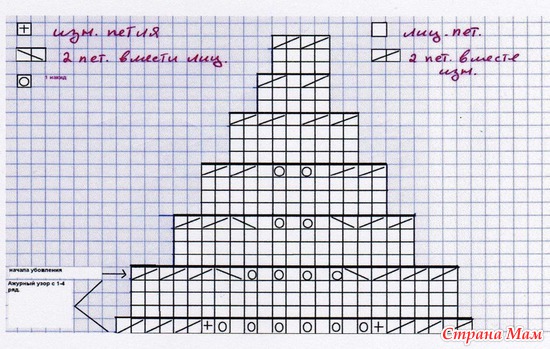 + изн. петля
2 пет. вмести лиц.
O 1 накид
лиц. пет.
2 пет. вместе
изн.
начала убовления
Ажурный узор с 1-4
ряд.
Страна Мам